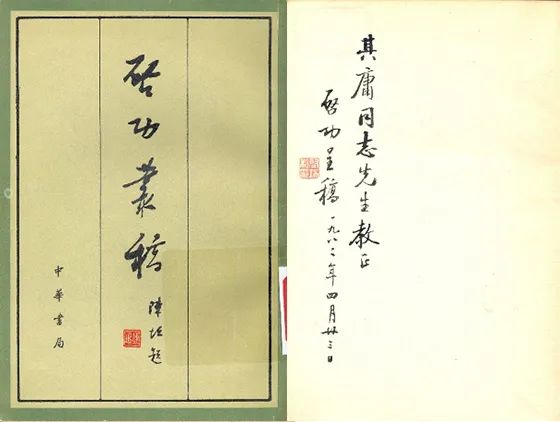 启功叢稿
陳垣題
中華書局
其庸同志先生教正
启功呈稿 一九八二年四月廿三日